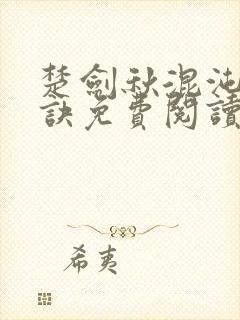 楚劍秋混沌
訣免費閱讀
希夷